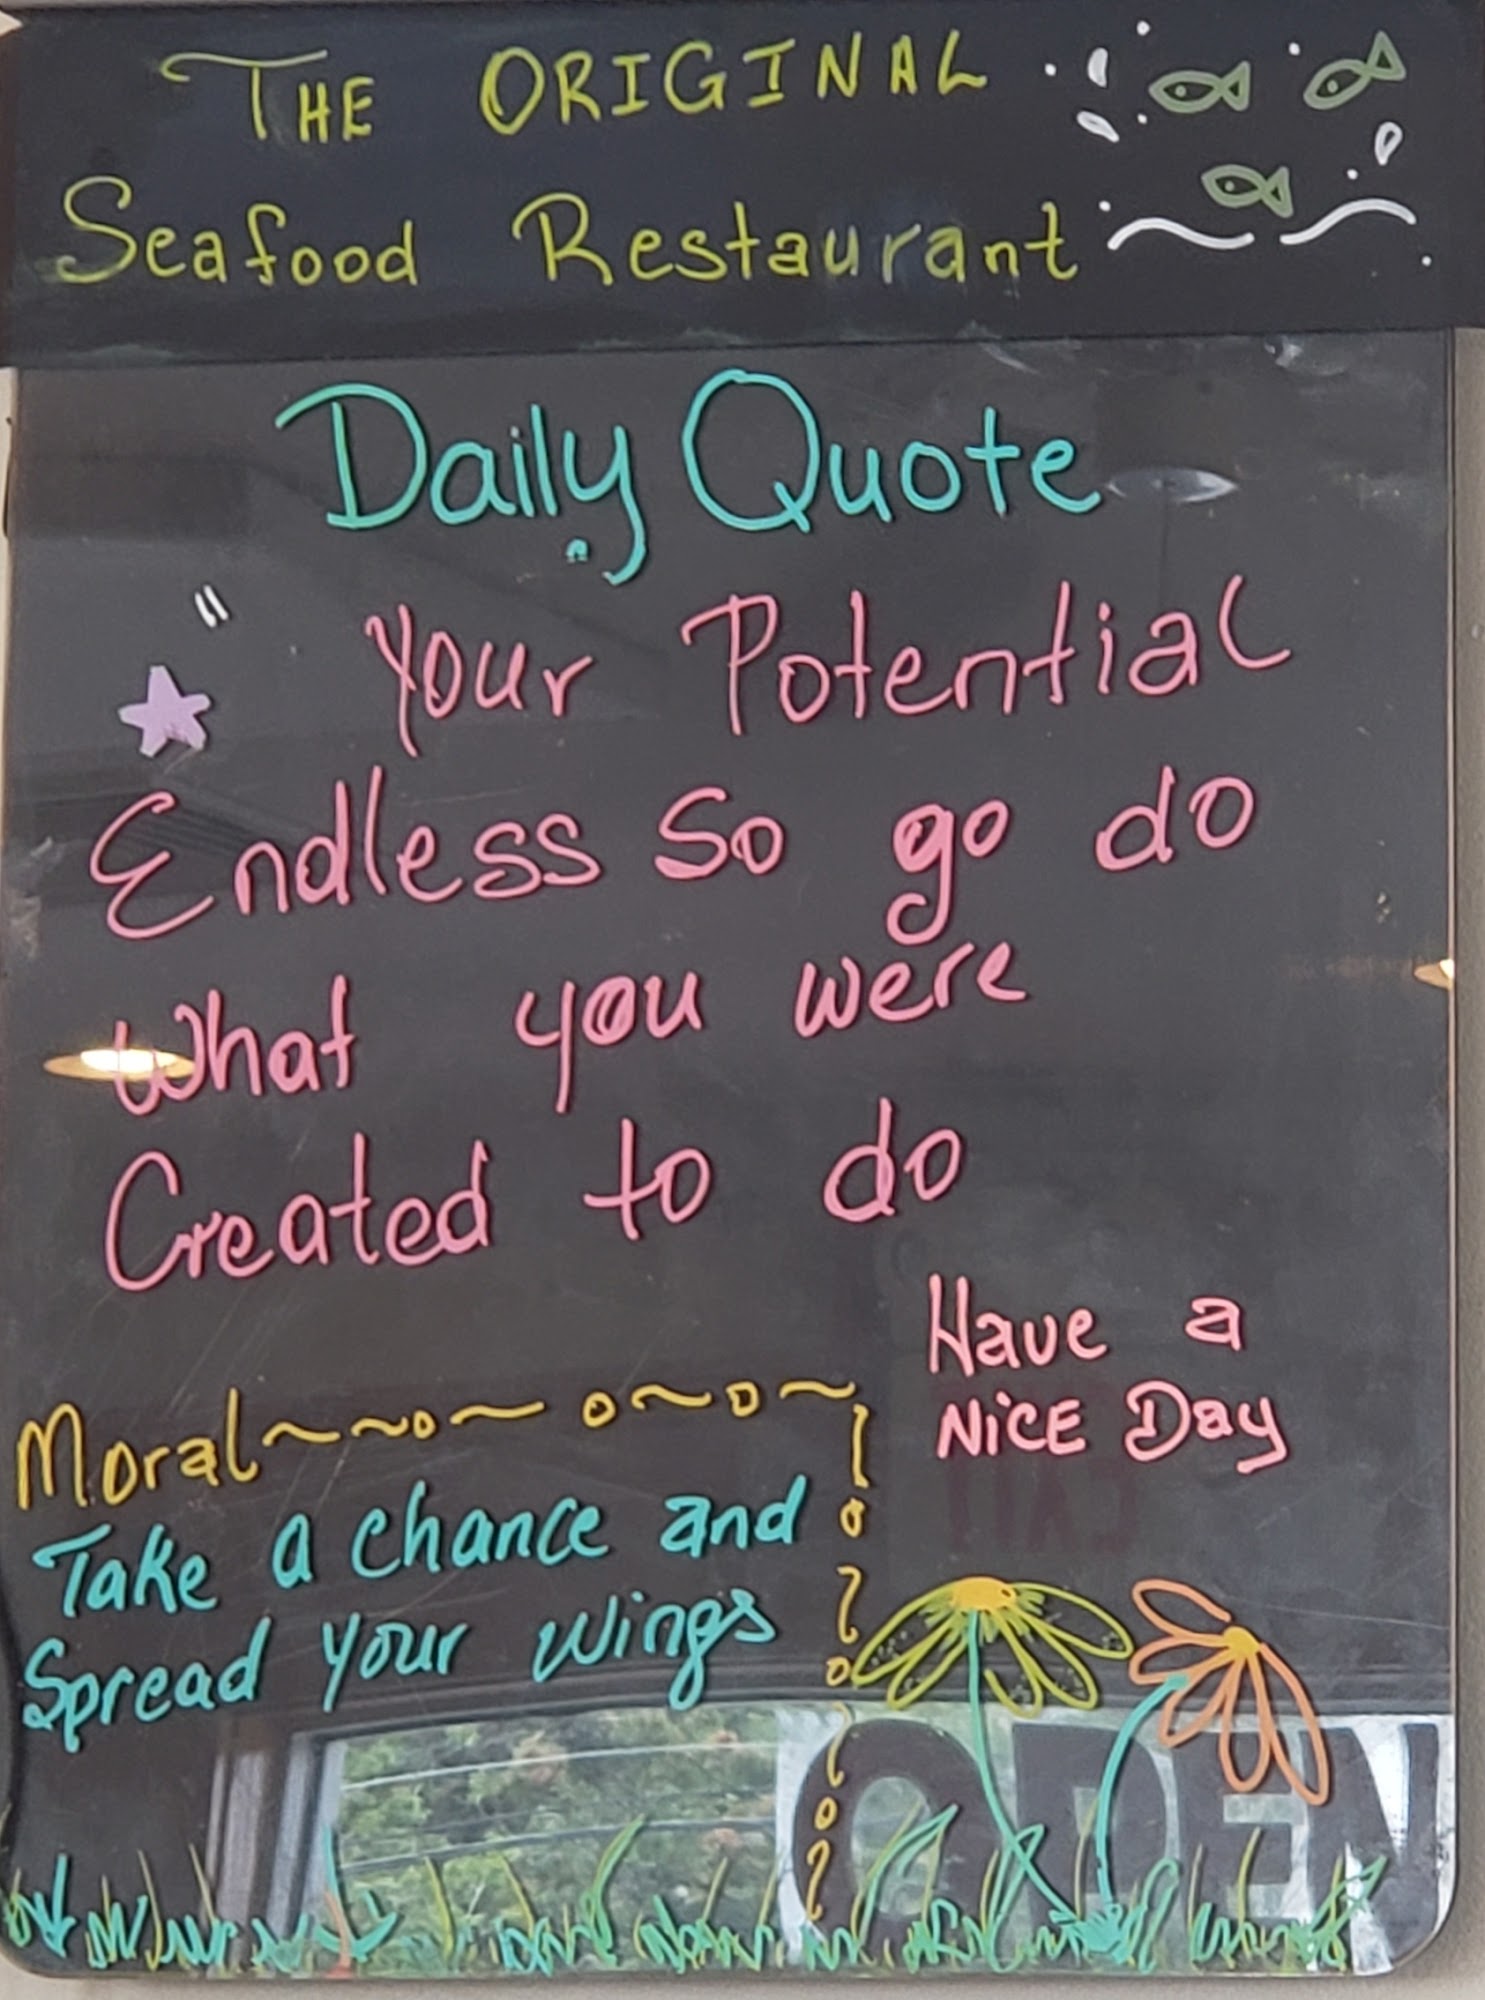 THE ORIGINAL
Seafood Restaurant
Daily Quote
" Your Potential
Endless So go do
What you were
Created to do
Have a
NiCE Day
Moral
Take a chance and
Spread your wings
OPEN